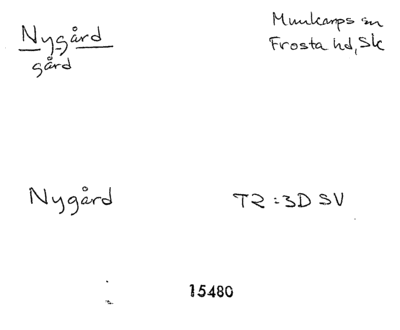 Nygård
gård
Munkarps sn
Frosta hd, Sk
Nygård
TR:3D SV
15480